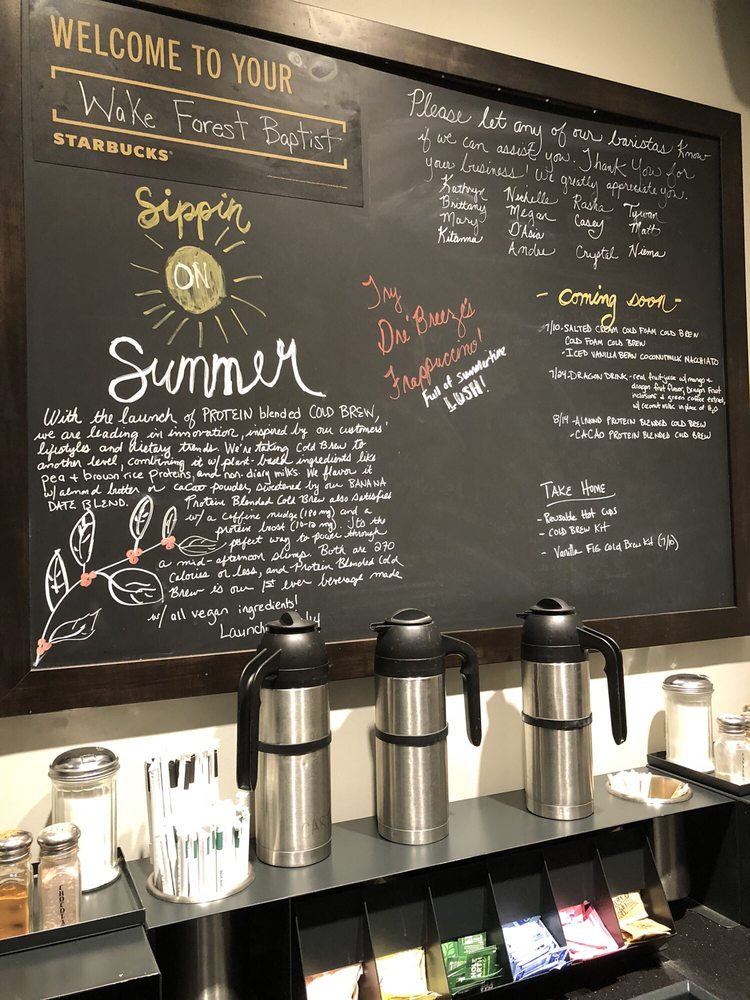 WELCOME TO YOUR
Wake Forest Baptist
STARBUCKS
Please let any of our baristas know
if we can assist you. Thank you for
your business! We greatly appreciate you.
Kathryn Nechelle Rasha Tywan
Brittany Megan Casey Matt
Mary D'Asia
Kitanna Andre Crystal Niema
Sippin
ON
Summer
With the launch of PROTEIN blended COLD BREW,
we are leading in innovation, inspired by our customers'
lifestyles and dietary trends. We're taking Cold Brew to
another level, combining it w/ plant-based ingredients like
pea + brown rice proteins, and non-diary milks. We flavor it
w/ almond butter or cacao powder, swetened by our BANANA
DATE BLEND.
Protein Blended Cold Brew also satisfies
w/ a caffeine nudge (180 mg) and a
protein boost (10-12 mg). Its the
perfect way to power through
a mid-afternoon slump. Both are 270
calories or less, and Protein Blended Cold
Brew is our 1st ever beverage made
w/ all vegan ingredients!
Try
Dre'Breeze's
Frappuccino!
Full of Summertime
LUSH!
- Coming soon -
7/10 - SALTED CREAM COLD FOAM COLD BREW
COLD FOAM COLD BREW
- ICED VANILLA BEAN COCONUTMILK MACCHIATO
7/24 - DRAGON DRINK - real fruit juice w/ mango +
dragon fruit flavor, Dragon Fruit
inclusions + green coffee extract,
w/ coconut milk in place of H2O
8/14 - ALMOND PROTEIN BLENDED COLD BREW
- CACAO PROTEIN BLENDED COLD BREW
TAKE HOME
- Reusable Hot Cups
- COLD BREW KIT
- Vanilla FIG Cold Brew Kit (7/10)
CHOCOLATE